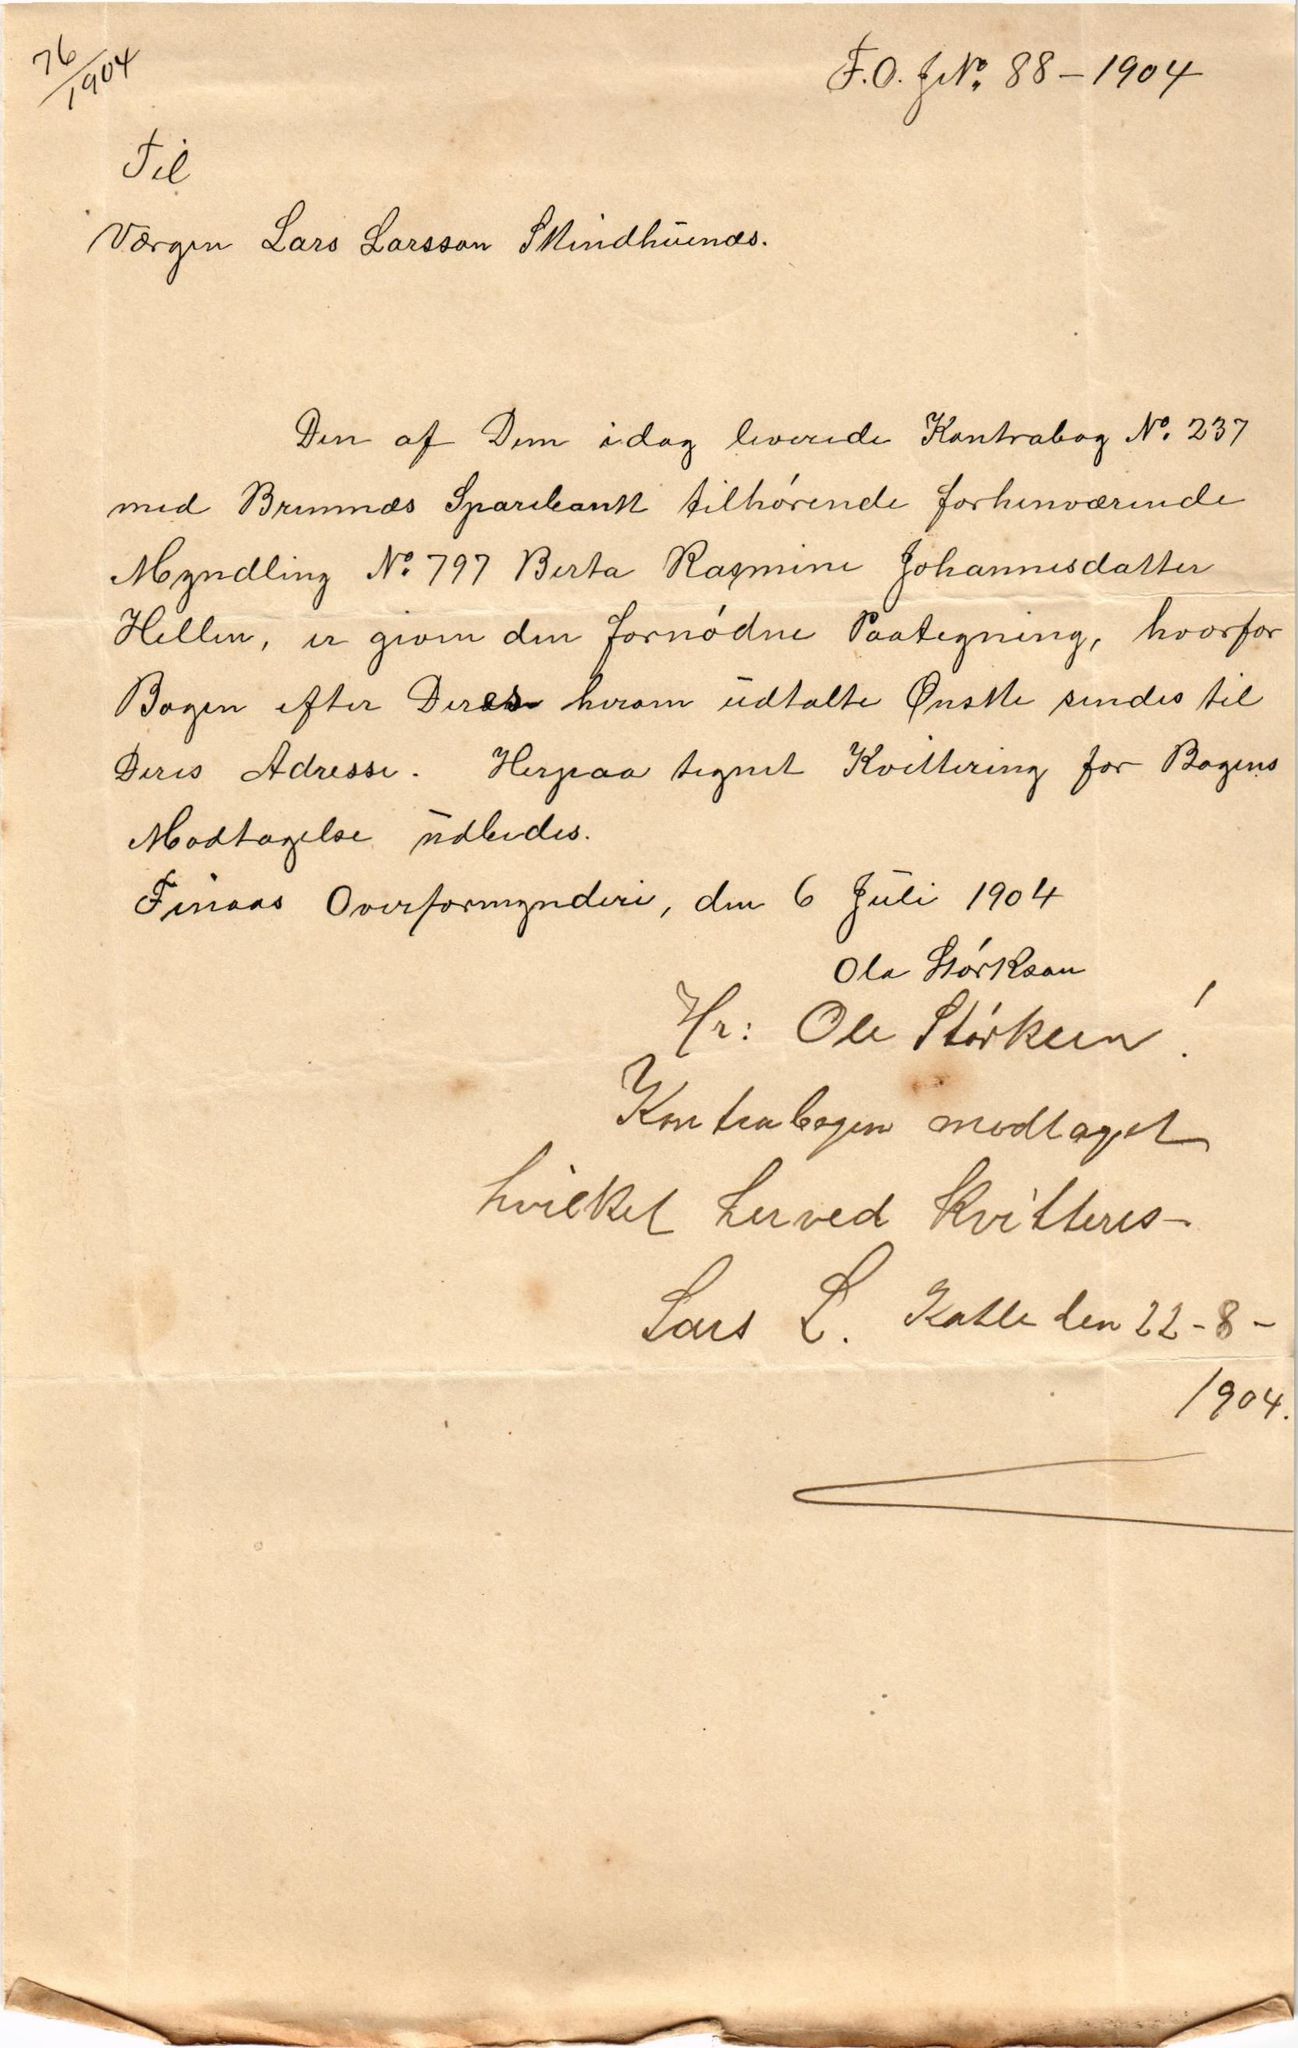 76/1904
F.O. J№. 88 - 1904
Til
Værgen Lars Larsson Skindhuenæs.
Den af Dem idag leverede Kontrabog №. 237
med Bremnæs Sparebank tilhørende forhenværende
Myndling №. 797 Berta Rasmine Johannesdatter
Hellen, er given den fornødne Paategning, hvorfor
Bogen efter Deres herom udtalte Ønske sendes til
Deres Adresse. Herpaa tegnet Kvittering for Bogens
Modtagelse udbedes.
Finaas Overformynderi, den 6 Juli 1904
Ola Størkson
Hr: Ole Størksen!
Kontrabogen modtaget
hvilket herved kvitteres -
Lars L. Katle den 22 - 8 -
1904.